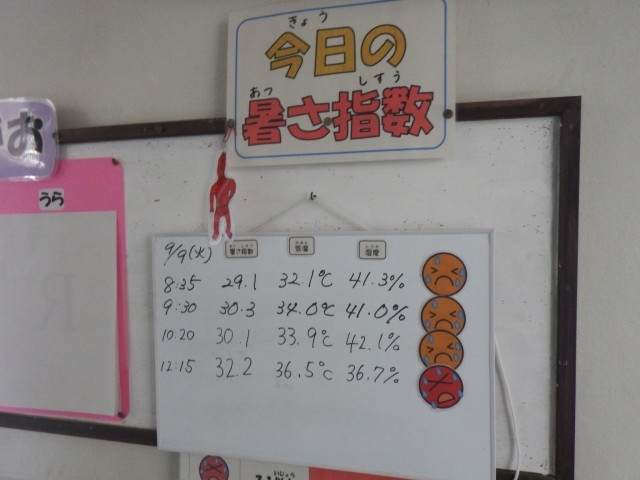 きょう
今日の
あつ しすう
暑さ指数
お
うら
9/9(火) 暑さ指数 気温 湿度
8:35 29.1 32.1℃ 41.3%
9:30 30.3 34.0℃ 41.0%
10:20 30.1 33.9℃ 42.1%
12:15 32.2 36.5℃ 36.7%
いじょう